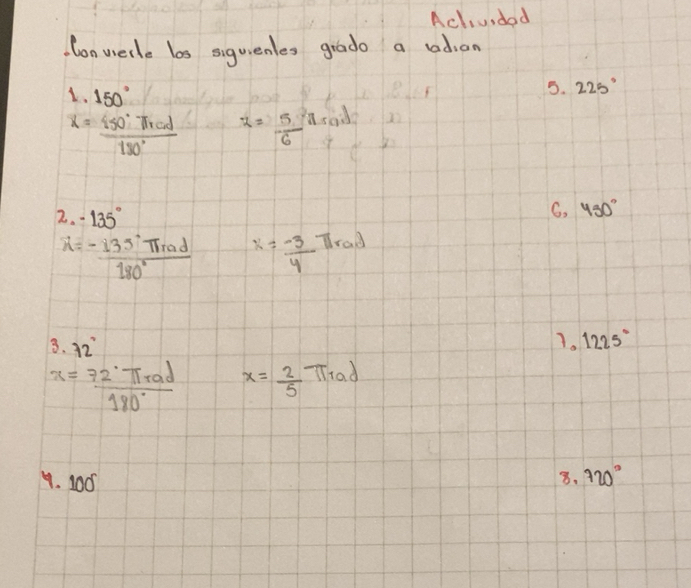 Actividad
.Convierte los siguientes grado a radian
1. 150°
x = 150° πrad / 180°
x = 5/6 πrad
2. -135°
x = -135° πrad / 180°
x = -3/4 πrad
3. 72°
x = 72° πrad / 180°
x = 2/5 πrad
4. 100°
5. 225°
6. 450°
7. 1225°
8. 720°